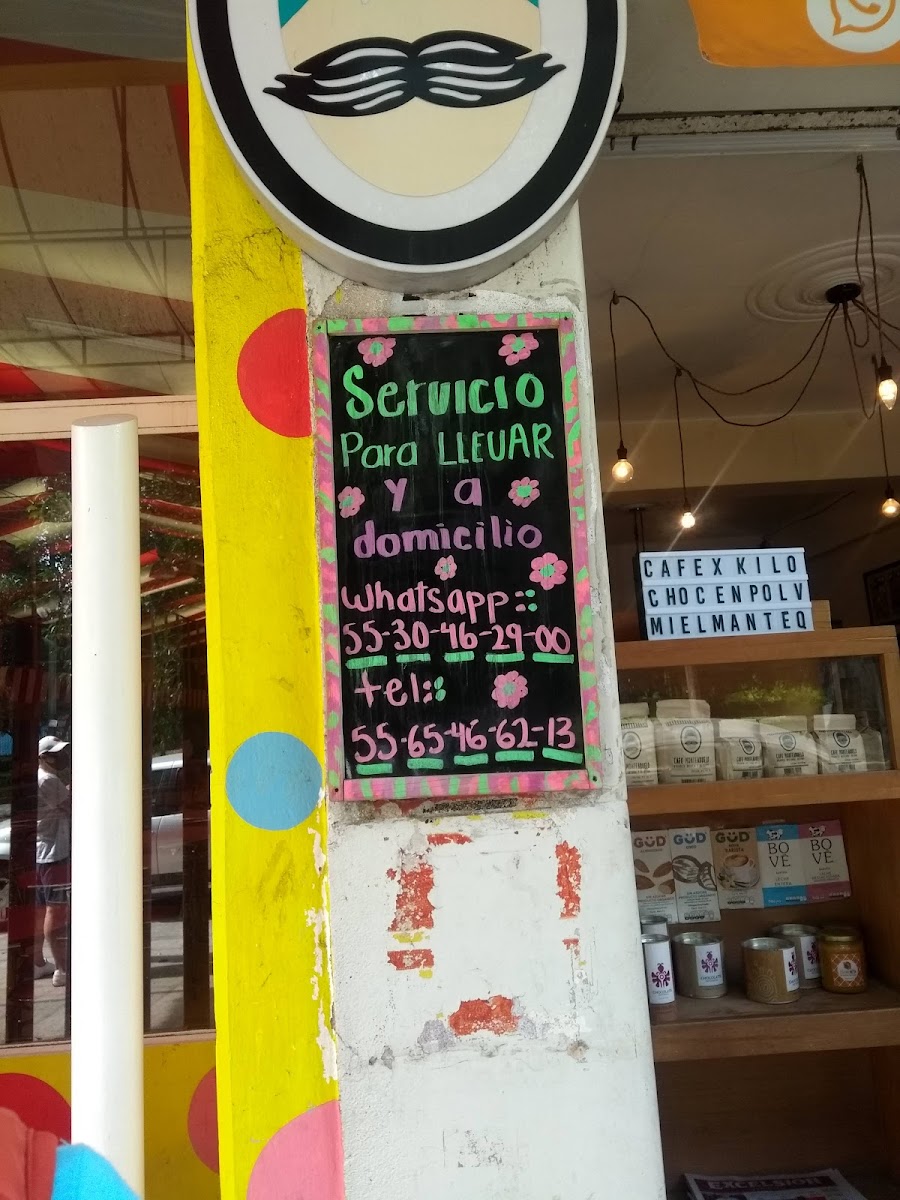 Servicio
Para LLEVAR
y a
domicilio
Whatsapp::
55-30-46-29-00
tel::
55-65-46-62-13
CAFE X KILO
CHOC EN POLV
MIEL MANTEQ
GÜD
GÜD
GÜD
BO
VE
BO
VE
EXCELSIOR